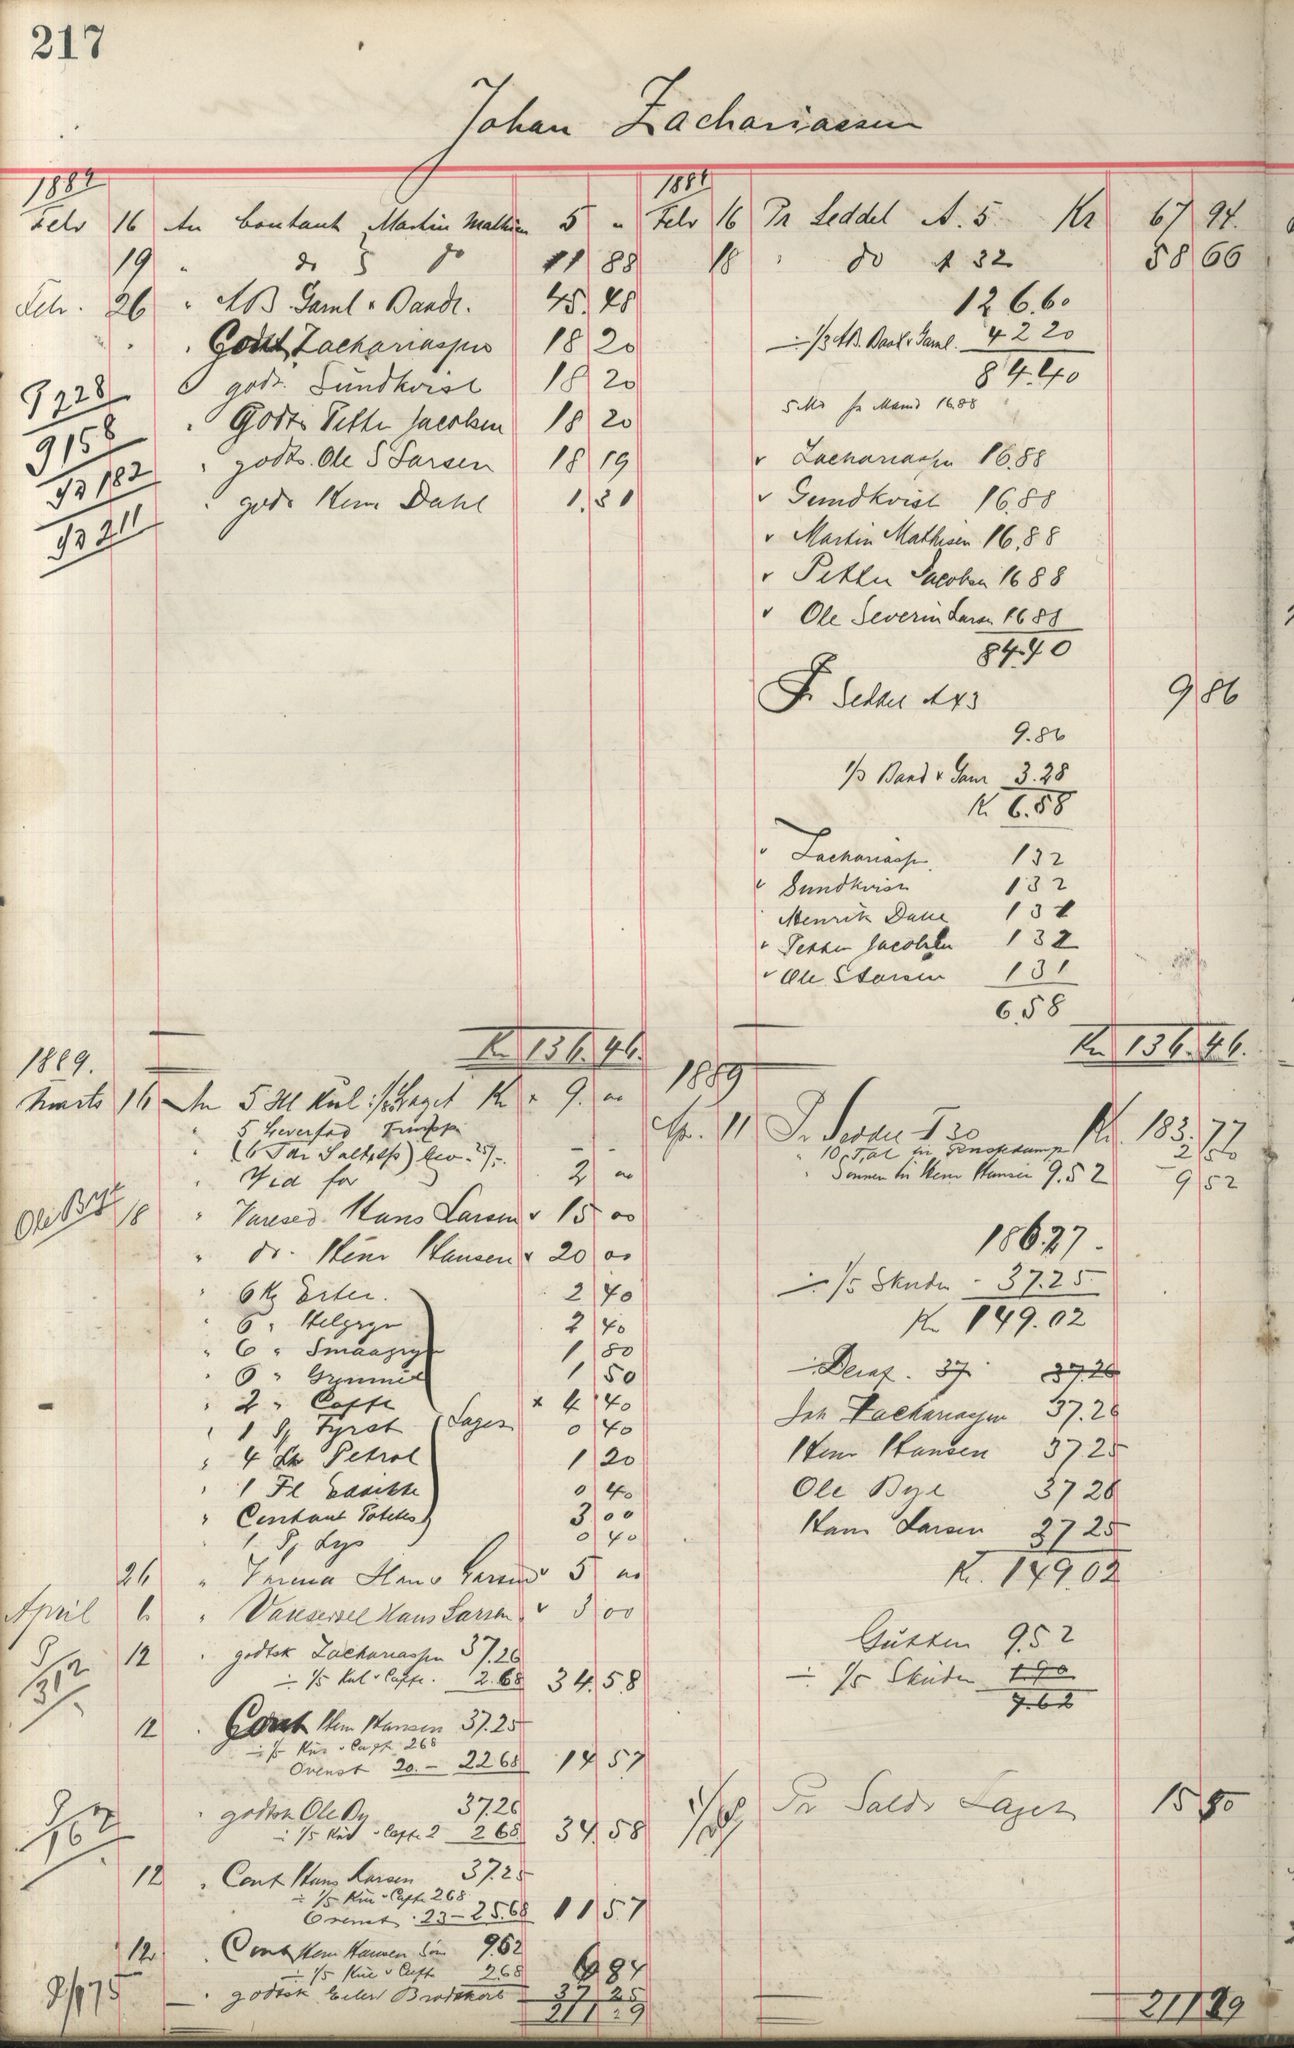 217
Johan Zachariassen
1889
Febr 16 An Contant Martin Mathisen 5 "
19 " do do 11 88
Febr. 26 " AB Garnl & Baadl. 45.48
" " Godts Zachariassen 18 20
godts. Sundkvist 18 20
P 228
" Godts Petter Jacobsen 18 20
P 158
" godts. Ole S Larsen 18 19
182
" gods Henr Dahl 1.31
211
1889
Febr 16 Pr Seddel A. 5 Kr 67 94.
18 " do A 32 58 66
126.60
÷ 1/3 AB. Baadl & Garnl. 42 20
84.40
5 Md pr Mand 16.88
v Zachariassen 16.88
v Sundkvist 16.88
v Martin Mathisen 16.88
v Petter Jacobsen 16 88
v Ole Severin Larsen 16 88
84.40
Pr Seddel A 43 9 86
9.86
1/3 Baad & Garn 3.28
Kr 6.58
v Zachariassen 132
v Sundkvist 132
Henrik Dahl 131
v Petter Jacobsen 132
v Ole S Larsen 131
6.58
Kr 136.46.
Kr 136.46.
1889.
Marts 16 An 5 Hl Kul Laget Kr x 9. "
" 5 Leverfad
" (6 Tdr Salt) - -
" Ved for 2 "
Ole Bye
18 " Varesed Hans Larsen v 15 00
" do. Henr Hansen v 20 00
" 6 Kg Erter. 2 40
" 6 " Helgryn 2 40
" 6 " Smaagryn 1 80
" 6 " Grynmel 1 50
" 2 " Caffe x 4 40
" 1 Pj Fyrst Laget 0 40
" 4 Ltr Petrol 1 20
" 1 Fl Eddikke 0 40
" Contant Poteter 3 00
" 1 Pj Lys 0 40
26 " Hans Larsen v 5 "
April 6 " Vareseddel Hans Larsen v 3 00
P 312
12 " godtsk Zachariassen 37.26
÷ 1/5 Kul & Caffe. 2.68 34.58
12 " Cont Henr Hansen 37.25
÷ 1/5 Kul & Caffe 268
Ovenst 20.- 22 68 14 57
P 162
" godtsk Ole By 37.26
÷ 1/5 Kul & Caffe 2 2 68 34.58
12 " Cont Hans Larsen 37.25
÷ 1/5 Kul & Caffe 268
Ovenst. 23 - 25.68 11 57
12 " Cont Henr Hansen Søn 9.52
÷ 1/5 Kul & Caffe 2.68 6 84
P 175
" godtsk Eilert 37 25
211 29
1889
Ap. 11 Pr Seddel I 30 Kr. 183.77
" 10 2 50
" Sønnen til Henr Hansen 9.52 9 52
186.27
÷ 1/5 Skuden - 37.25
Kr 149.02
Deraf. 37 37.26
Joh Zachariassen 37.26
Henr Hansen 37 25
Ole Bye 37 26
Hans Larsen 37 25
Kr. 149.02
Gutten 9.52
÷ 1/5 Skuden 1 90
7.62
Pr Saldo Laget 15 50
211 29